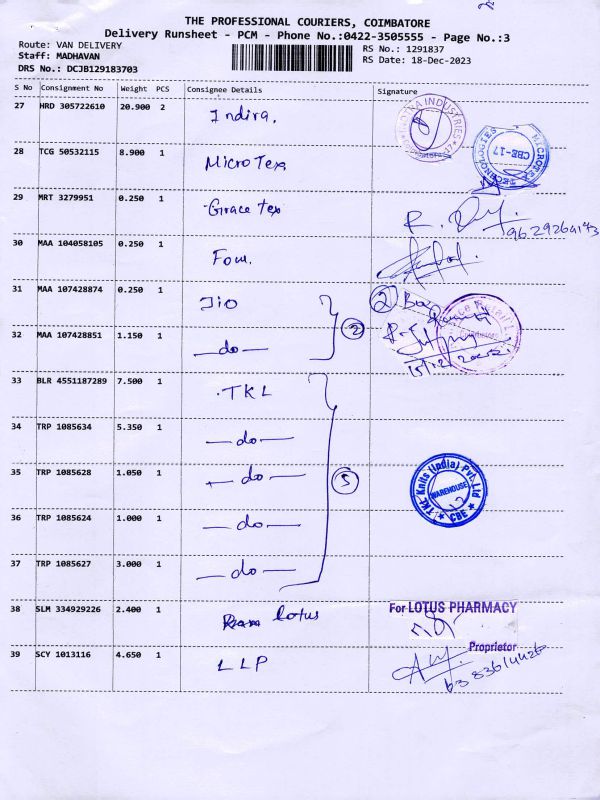 THE PROFESSIONAL COURIERS, COIMBATORE
Delivery Runsheet - PCM - Phone No.:0422-3505555 - Page No.:3
Route: VAN DELIVERY
RS No.: 1291837
Staff: MADHAVAN
RS Date: 18-Dec-2023
DRS No.: DCJB129183703
S No Consignment No Weight PCS Consignee Details Signature
27 HRD 305722610 20.900 2 Indira,
INDUSTRIES
28 TCG 50532115 8.900 1 MicroTex
TECHNOLOGIES
CBE-17
29 MRT 3279951 0.250 1 Grace tex
9629264143
30 MAA 104058105 0.250 1 Fom.
31 MAA 107428874 0.250 1 JIO
②
32 MAA 107428851 1.150 1 —do— ②
33 BLR 4551187289 7.500 1 TKL
34 TRP 1085634 5.350 1 —do—
35 TRP 1085628 1.050 1 —do— ⑤
TKL Knits (India) Pvt. Ltd
WAREHOUSE
CBE
36 TRP 1085624 1.000 1 —do—
37 TRP 1085627 3.000 1 —do—
38 SLM 334929226 2.400 1 lotus
For LOTUS PHARMACY
Proprietor
39 SCY 1013116 4.650 1 LLP